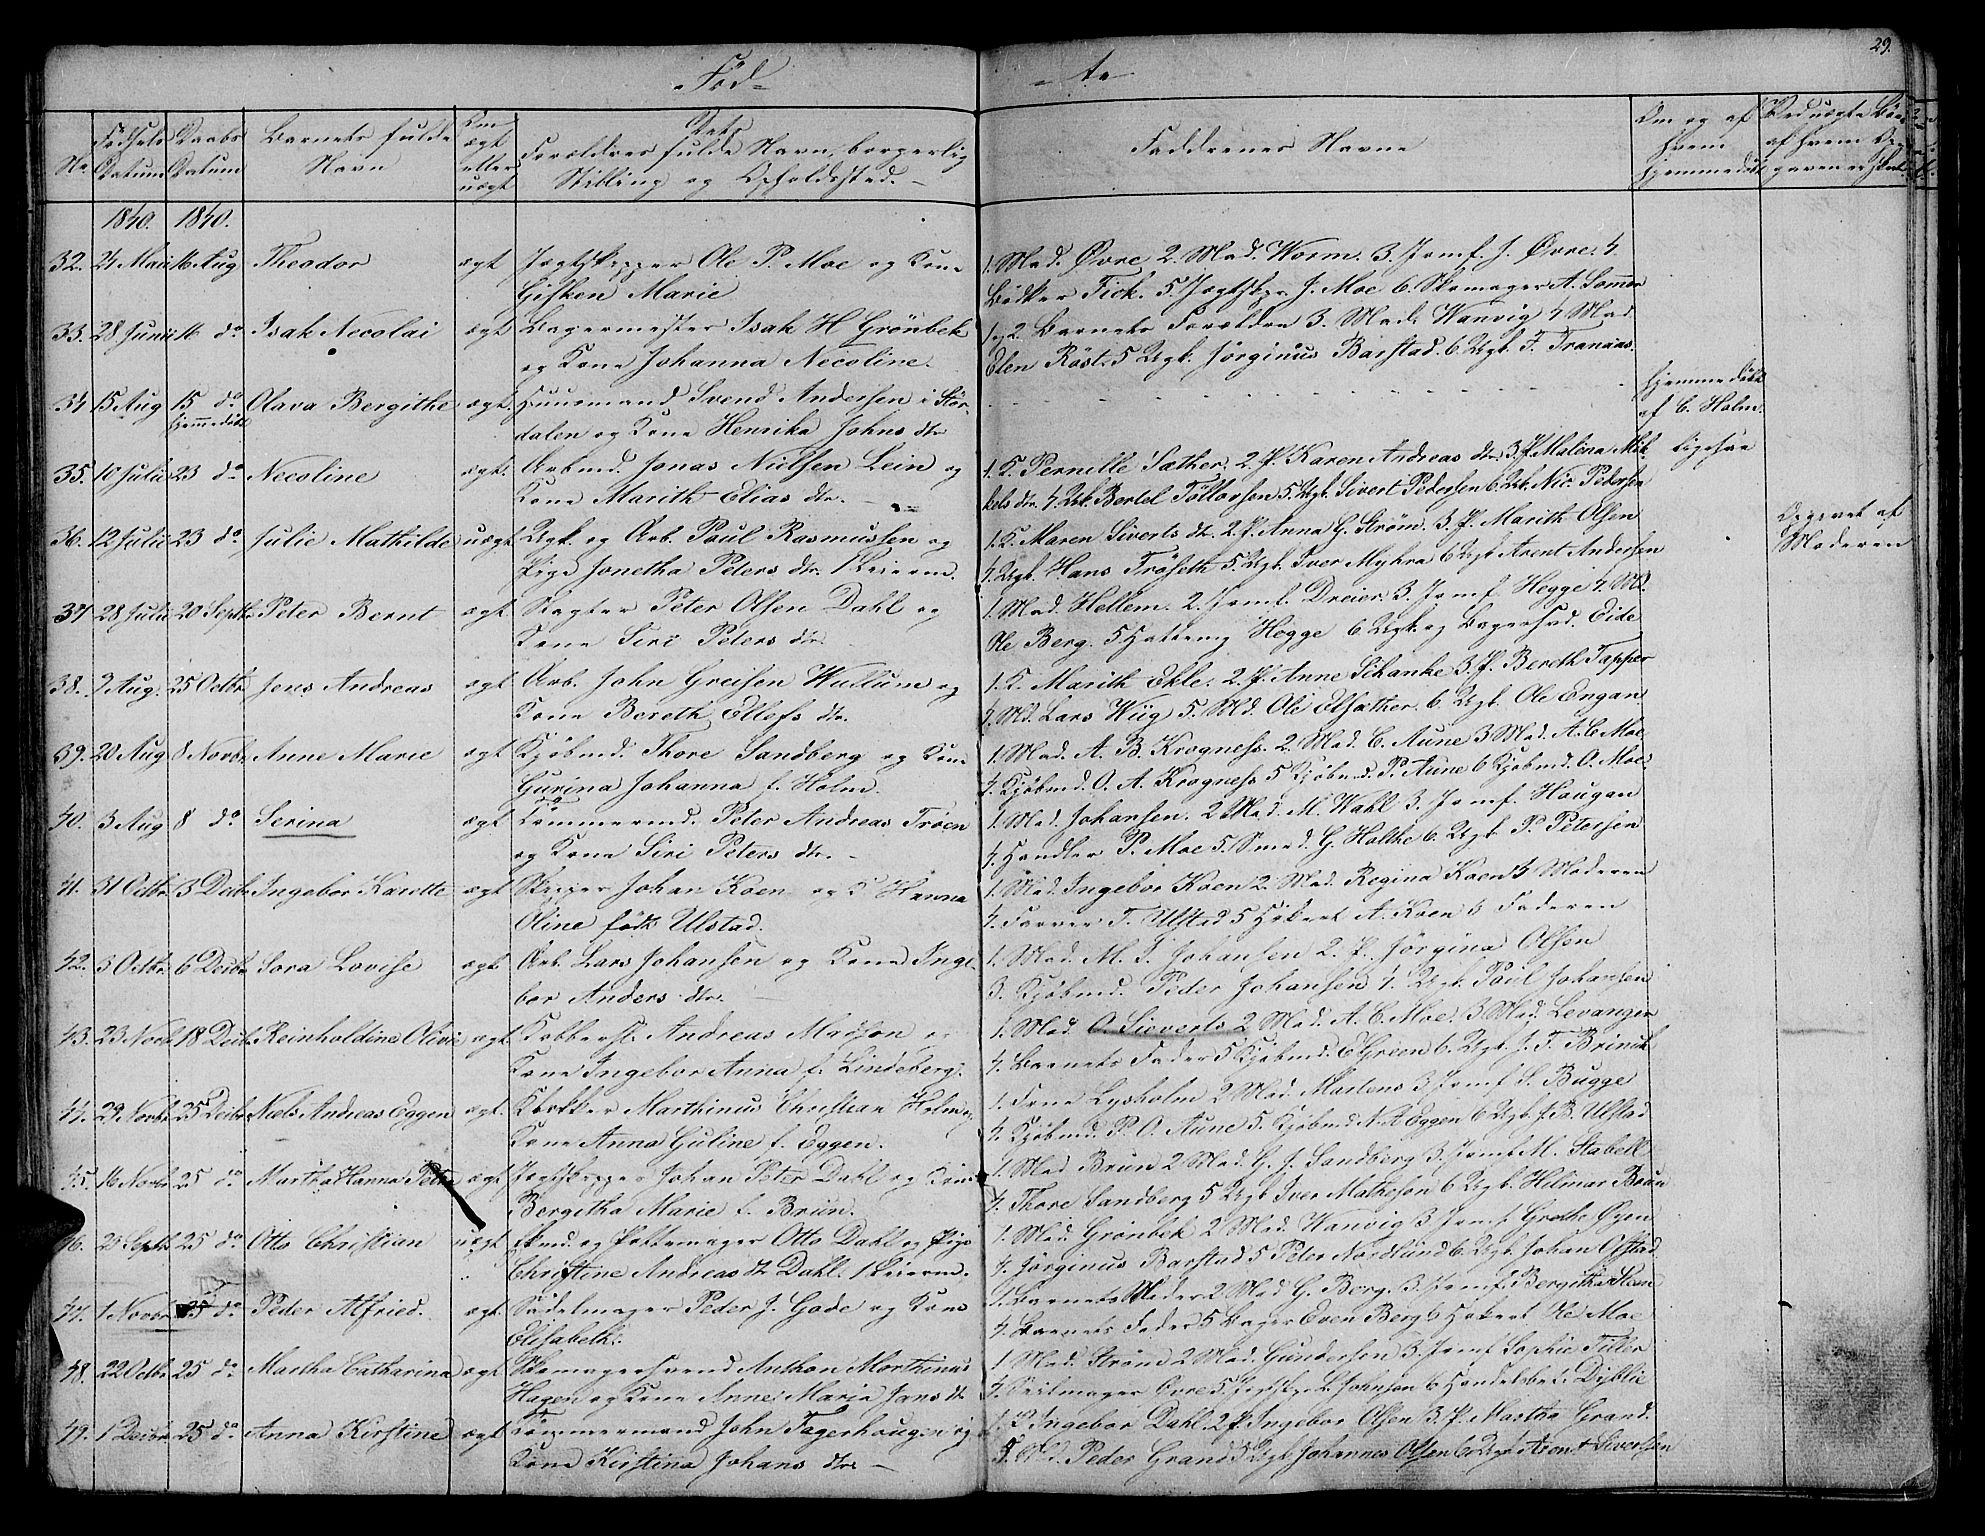 29.
Fød- te
No
Fødsels Datum
Daabs Datum
Barnets fulde Navn
Om ægt eller uægt
Dets Forældres fulde Navn, borgerlig Stilling og Opholdssted.
Faddrenes Navne
Om og af hvem hjemmedøbt
1840. 1840.
32. 24 Maii 16 Aug Theodor ægt Jægtskipper Ole P. Moe og Kone
Gisken Marie
1. Mad. Øvre 2. Mad. Worm. 3. Jomf. J. Øvre. 4.
Bødker Fick. 5. Jægtskpr. J. Moe 6. Skomager A. Sommer
33. 28 Junii 16 do Isak Necolai ægt Bagermester Isak H Grönbek
og Kone Johanna Necoline.
1 og 2 Barnets Forældre 3. Mad. Wanvig 4 Mad
Elen Röst. 5 Ugk. Jørginus Barstad. 6 Ugk. F. Tranaas.
34 15 Aug 15 do hjemmedøbt Olava Bergithe ægt. Huusmand Svend Andersen i Stör-
dalen og Kone Henrika Johns dtr
hjemmedøbt
af C. Holm.
35. 10 Julii 23 do Necoline ægt. Arbmd. Jonas Nielsen Lein og
Kone Marith Elias dtr.
1. K. Pernille Sæther. 2. P. Karen Andreas dtr. 3. P. Malena Mik-
kels dtr. 4. Ugk. Bertel Töllovsen 5. Ugk. Sivert Pedersen 6. Ugk. Nic. Pedersen
ligesaa
36. 12 Julii 23 do Julie Mathilde uægt Ugk. og Arb. Paul Rasmussen og
Pige Jonetha Peters dtr. 1 Leierm.
1. K. Maren Siverts dtr. 2. P. Anna G. Strøm. 3. P. Marith Olsen
4. Ugk. Hans Trøseth 5. Ugk. Iver Myhra 6 Ugk. Arent Andersen
Opgivet af
Moderen
37 28 Julii 20 Septbr Peter Bernt ægt Slagter Peter Olsen Dahl og
Kone Siri Peters dtr.
1. Mad. Hellem. 2. Jomf. Dreier. 3. Jomf. Hegge 4. Md.
Ole Berg. 5 Hattemg Hegge 6 Ugk. og Bagersvd. Eide
38. 9 Aug. 25 Octbr Jens Andreas ægt Arb. John Greisen Wullum og
Kone Bereth Ellefs dtr.
1. K. Marith Ekle. 2. P. Anne Schanke 3. P. Bereth Tapper
4. Md. Lars Wiig 5. Md. Ole Elsæther. 6. Ugk. Ole Engan
39. 20 Aug 8 Novbr Anne Marie ægt Kjøbmd. Thore Sandberg og Kone
Gurina Johanna f. Holm.
1. Mad. A. B. Krogness. 2. Mad. C. Aune 3 Mad. A. C. Moe
4. Kjøbmd. O. A. Krogness 5 Kjøbmd. P. Aune 6 Kjøbmd. O. Moe.
40. 3 Aug 8 do Serina ægt Tömmermd. Peter Andreas Tröen
og Kone Siri Peters dtr.
1. Mad. Johansen. 2 Mad. M. Wahl 3. Jomf. Haugan
4. Handler P. Moe 5. Smed. G. Holthe 6. Ugk P. Petersen
41. 31 Octbr. 3 Decbr Ingebor Karotte ægt Skipper Johan Koen og K Hanna
Oline født Ulstad.
1. Mad. Ingebor Koen 2. Mad. Regina Koen 3 Moderen
4. Farver T. Ulstad 5 Høkert A. Koen 6 Faderen
42. 3 Octbr. 6 Decbr Sora Lovise ægt Arb. Lars Johansen og Kone Inge-
bor Anders dtr.
1. Mad. M. S. Johansen 2. P. Jörgina Olsen
3. Kjøbmd. Peder Johansen 4. Ugk. Paul Johansen
43. 23 Novbr 18 Decbr Reinholdine Olive ægt. Kobbersl. Andreas Madson og
Kone Ingebor Anna f. Lindeberg.
1. Mad. O. Sieverts 2 Mad. A. C. Moe. 3 Mad. Levanger
4. Barnets Fader 5 Kjøbmd. E Green 6. Ugk. J. F. Brinck
44. 29 Novbr 25 Decbr Niels Andreas Eggen ægt. Klokker Marthinus Christian Holm og
Kone Anna Guline f. Eggen.
1. Frue Lysholm 2 Mad. Martens 3 Jomf. S. Bugge
4. Kjøbmd. P. O. Aune 5. Kjøbmd N. A Eggen 6 Ugk. J. B. Ulstad
45. 16 Novbr 25 do Martha Hanna Petra ægt Jægtskipper Johan Peter Dahl og Kone
Bergitha Marie f. Brün.
1. Mad Brun 2 Mad. G. J. Sandberg 3. Jomf. M. Stabell
4. Thore Sandberg 5 Ugk Iver Matheson 6 Ugk. Hilmar Brün
46. 23 Septbr 25 do Otto Christian uægt Ekmd. og Pottemager Otto Dahl og Pige
Christine Andreas dtr Dahl. 1 Leierm.
1. Mad Grönbek 2 Mad. Wanvig 3 Jomf. Grethe Öyen
4. Jörginus Barstad 5 Peter Nordlund 6. Ugk. Johan Ofstad
47. 1 Novbr 25 do Peder Alfried. ægt Sadelmager Peder J. Gade og Kone
Elisabeth.
1. Barnets Moder 2 Mad G. Berg. 3. Jomf. Bergitha Steen
4. Barnets Fader 5 Bager Even Berg 6 Høkert Ole Moe
48. 22 Octbr 25 do Martha Catharina ægt Skomagersvend Anthon Marthinus
Hagen og Kone Anne Maria Jans dtr
1 Mad. Ström 2 Mad. Gundersen 3. Jomf Sophie Tiller
4. Seilmager Øvre 5 Jægtskpr L. Johnson 6 Handelsbet. Dyblie
49. 1 Decbr 25 do Anna Kirstine ægt Tömmermand John Fagerhougen og
Kone Kirstina Johans dtr
1. K. Ingebor Dahl. 2 P. Ingebor Olsen 3. P. Martha Grand.
4. Md. Peder Grand 5 Ugk. Johannes Olsen 6 Ugk Arent Siversen